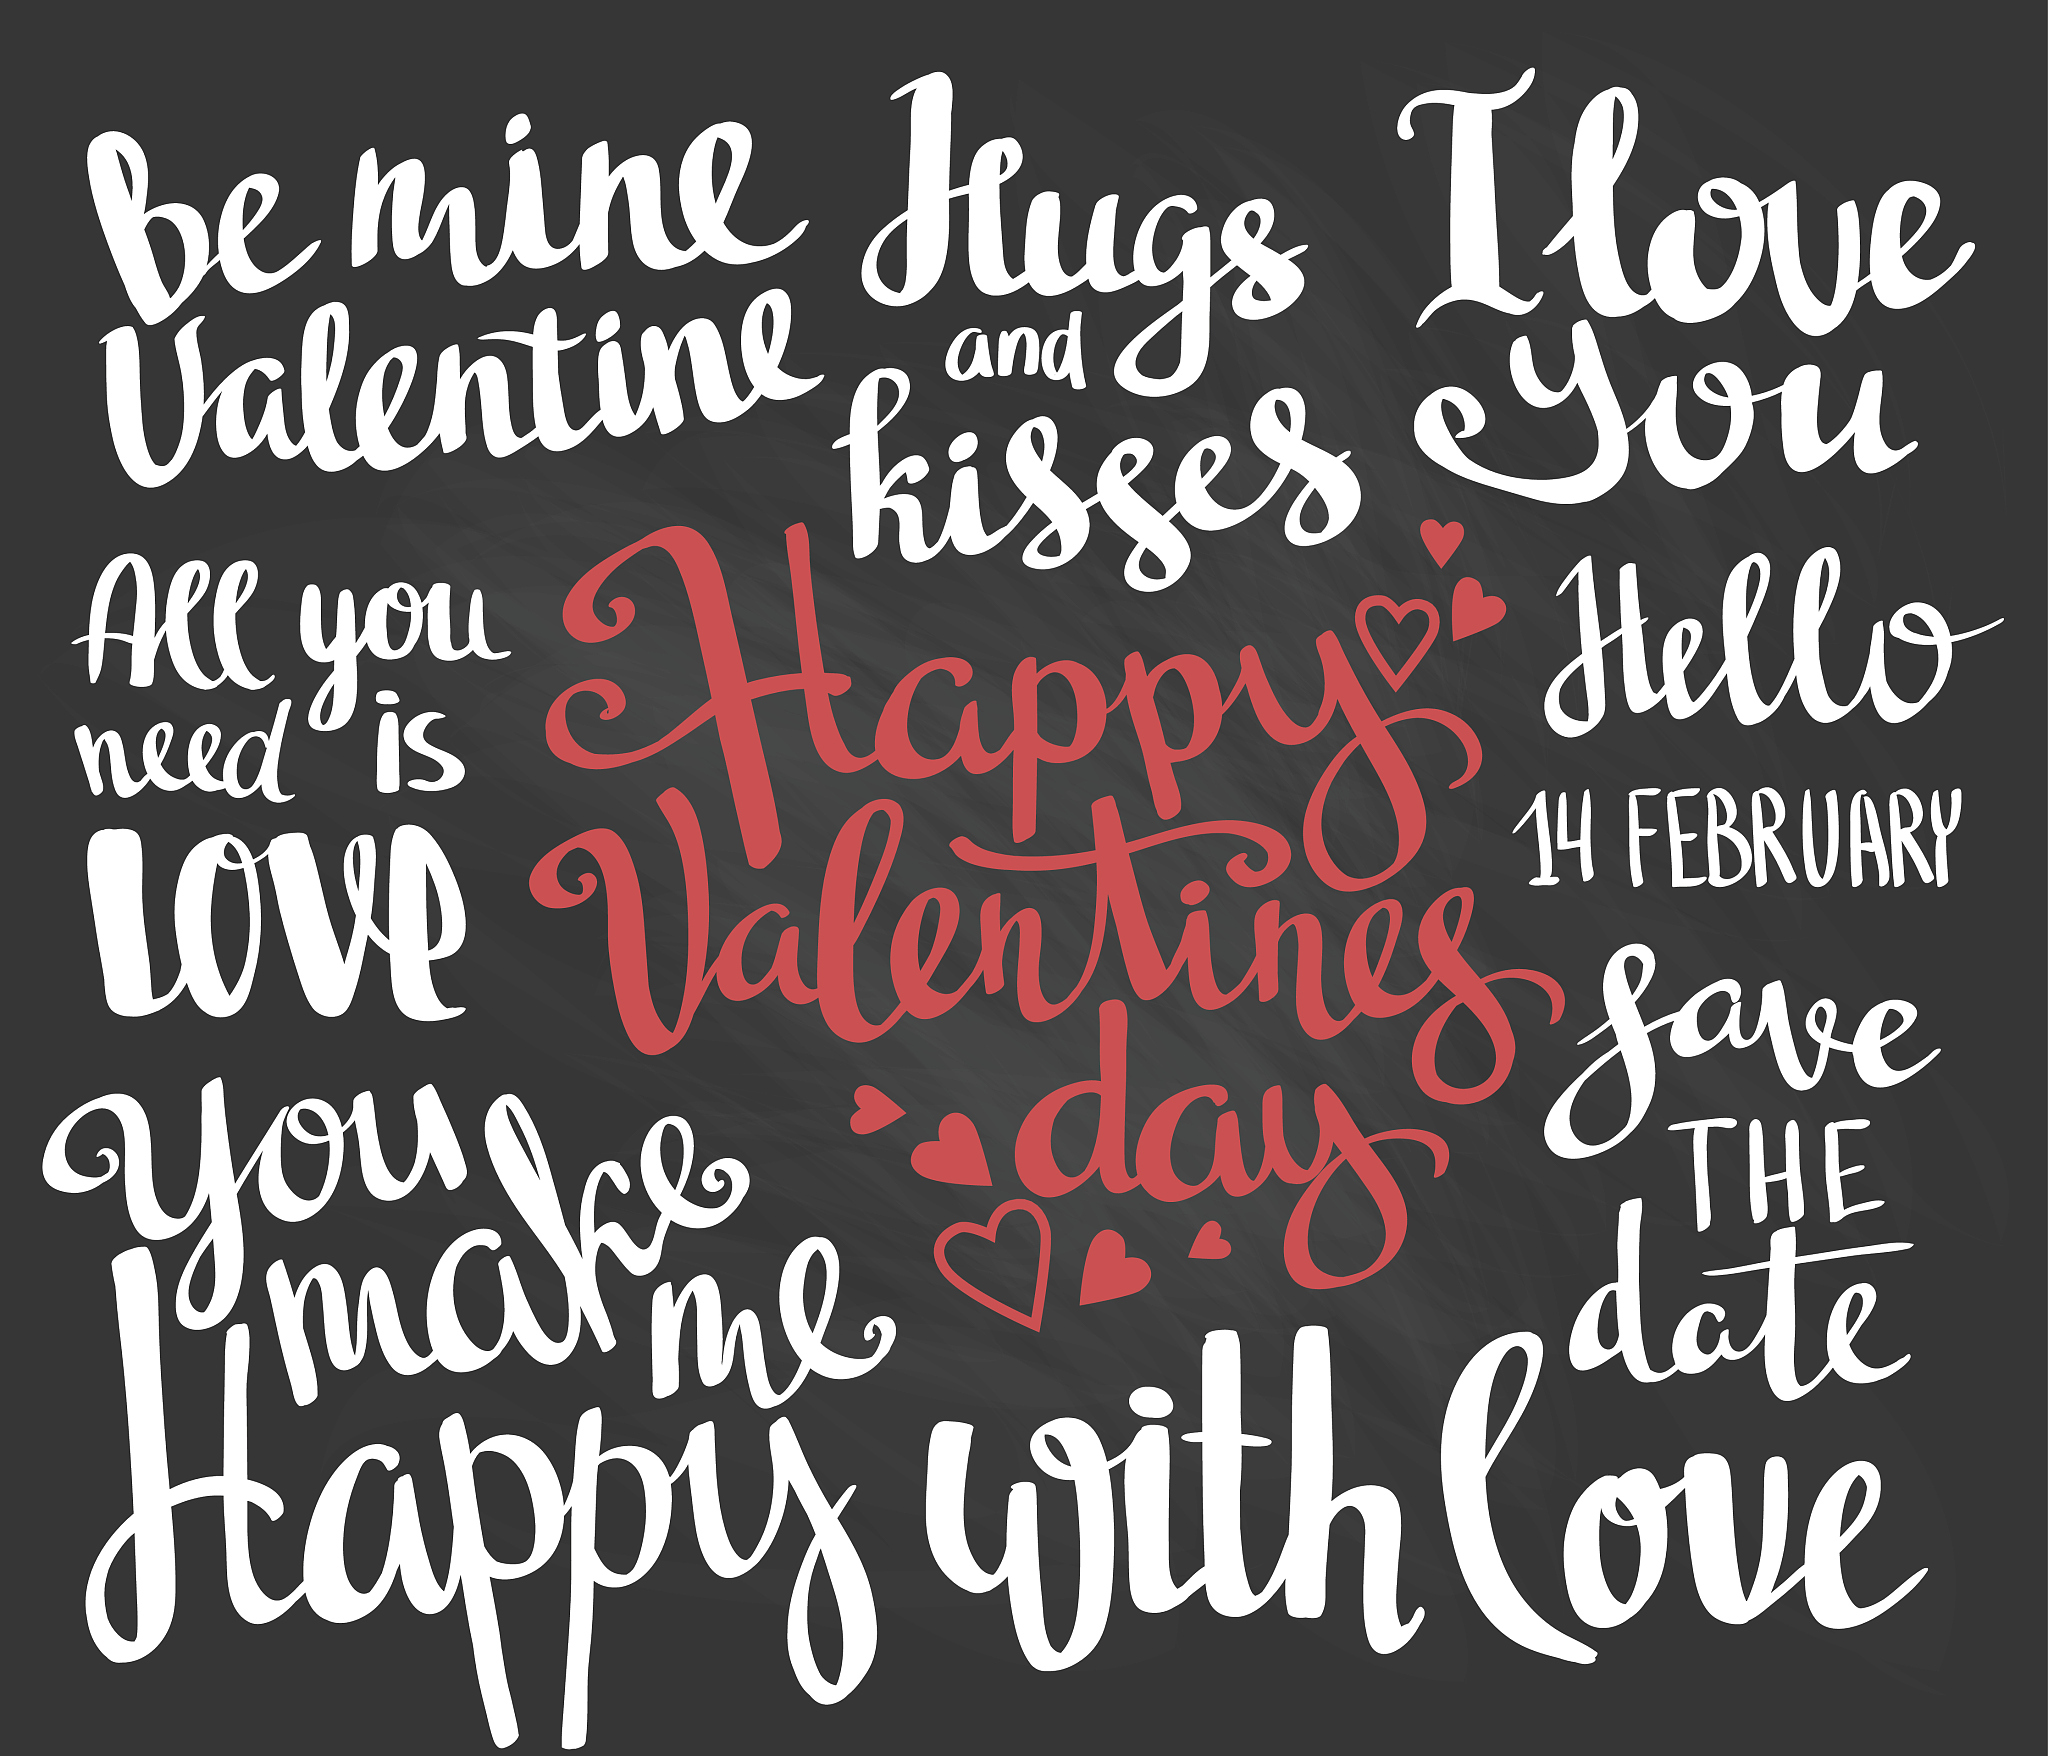 be mine
Valentine
Hugs
and
kisses
I love
you
All you
need is
love
Happy
Valentines
day
Hello
14 FEBRUARY
save
THE
date
You
make
me
Happy
with
love